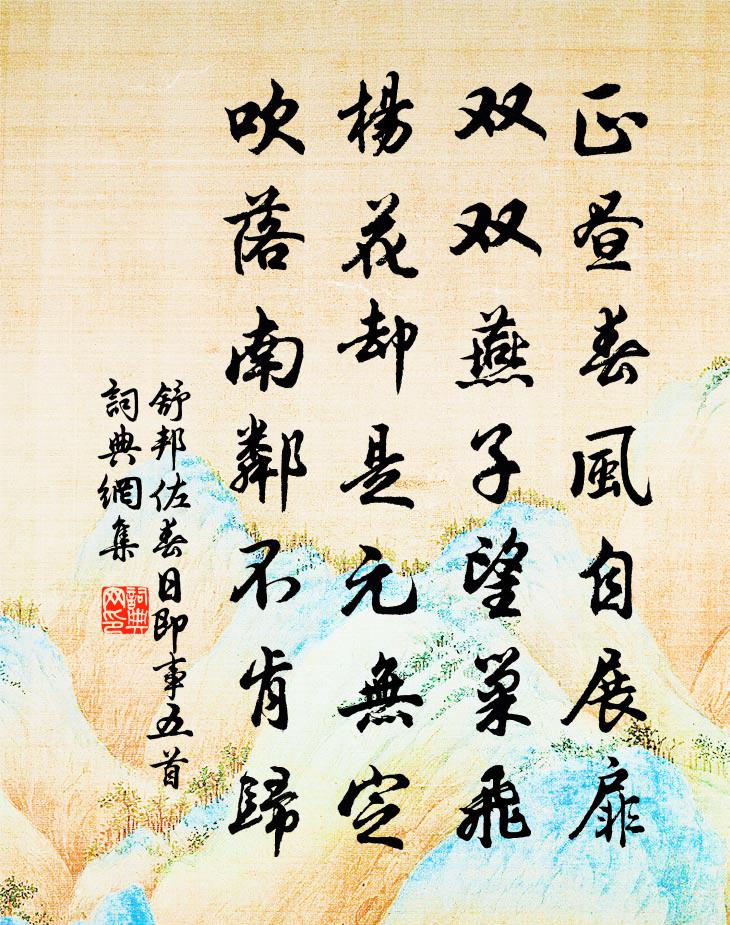 正晝春風自展扉
双双燕子望巢飛
楊花却是元無定
吹落南鄰不肯歸
舒邦佐春日即事五首
詞典網集
詞典
网印